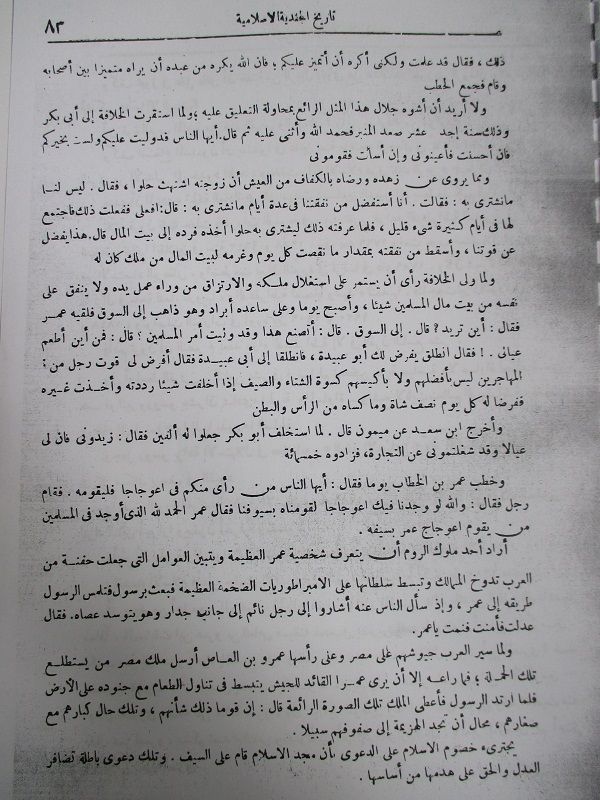 تاريخ الجندية الاسلامية
٨٣
ذلك ، فقال قد علمت ولكنى أكره أن أتميز عليكم ؛ فان الله يكره من عبده أن يراه متميزا بين أصحابه
وقام فجمع الحطب
ولا أريد أن أشوه جلال هذا المثل الرائع بمحاولة التعليق عليه ؛ ولما استقرت الخلافة إلى أبى بكر
وذلك سنة إحد عشر صعد المنبر فحمد الله وأثنى عليه ثم قال. أيها الناس قد وليت عليكم ولست بخيركم
فان أحسنت فأعينونى وإن أسأت فقومونى
ومما يروى عن زهده ورضاه بالكفاف من العيش أن زوجته اشتهت حلوا ، فقال . ليس لنا
مانشترى به : فقالت . أنا أستفضل من نفقتنا فى عدة أيام مانشترى به : قال : افعلى ففعلت ذلك فاجتمع
لها فى أيام كثيرة شىء قليل ، فلما عرفته ذلك ليشترى به حلوا أخذه فرده إلى بيت المال قال. هذا يفضل
عن قوتنا ، وأسقط من نفقته بمقدار ما نقصت كل يوم وغرمه لبيت المال من ملك كان له
ولما ولى الخلافة رأى أن يستمر على استغلال ملكه والارتزاق من وراء عمل يده ولا ينفق على
نفسه من بيت مال المسلمين شيئا ، وأصبح يوما وعلى ساعده أبراد وهو ذاهب إلى السوق فلقيه عمر
فقال : أين تريد ? قال . إلى السوق . قال : أتصنع هذا وقد وليت أمر المسلمين ؟ قال : فمن أين أطعم
عيالى . ! فقال انطلق يفرض لك أبو عبيدة ، فانطلقا إلى أبى عبيدة فقال أفرض لى قوت رجل من
المهاجرين ليس بأفضلهم ولا بأكيسهم كسوة الشتاء والصيف إذا أخلقت شيئا رددته وأخذت غيره
ففرضا له كل يوم نصف شاة وما كساه من الرأس والبطن
وأخرج ابن سعد عن ميمون قال . لما استخلف أبو بكر جعلوا له ألفين فقال : زيدونى فان لى
عيالا وقد شغلتمونى عن التجارة، فزادوه خمسمائة
وخطب عمر بن الخطاب يوما فقال : أيها الناس من رأى منكم فى اعوجاجا فليقومه . فقام
رجل فقال : والله لو وجدنا فيك اعوجاجا لقومناه بسيوفنا فقال عمر الحمد لله الذى أوجد فى المسلمين
من يقوم اعوجاج عمر بسيفه .
أراد أحد ملوك الروم أن يتعرف شخصية عمر العظيمة ويتبين العوامل التى جعلت حفنة من
العرب تدوخ الممالك وتبسط سلطانها على الامبراطوريات الضخمة العظيمة فبعث برسول فتلمس الرسول
طريقه إلى عمر ، وإذ سأل الناس عنه أشاروا إلى رجل نائم إلى جانب جدار وهو يتوسد عصاه. فقال
عدلت فأمنت فنمت ياعمر.
ولما سير العرب جيوشهم على مصر وعلى رأسها عمرو بن العاص أرسل ملك مصر من يستطلع
تلك الحملة ، فما راعه إلا أن يرى عمرا القائد للجيش يتبسط فى تناول الطعام مع جنوده على الأرض
فلما ارتد الرسول فأعطى الملك تلك الصورة الرائعة قال : إن قوما ذلك شأنهم ، وتلك حال كبارهم مع
صغارهم ، محال أن تجد الهزيمة إلى صفوفهم سبيلا .
يجترىء خصوم الاسلام على الدعوى بأن مجد الاسلام قام على السيف . وتلك دعوى باطلة تضافر
العدل والحق على هدمها من أساسها .